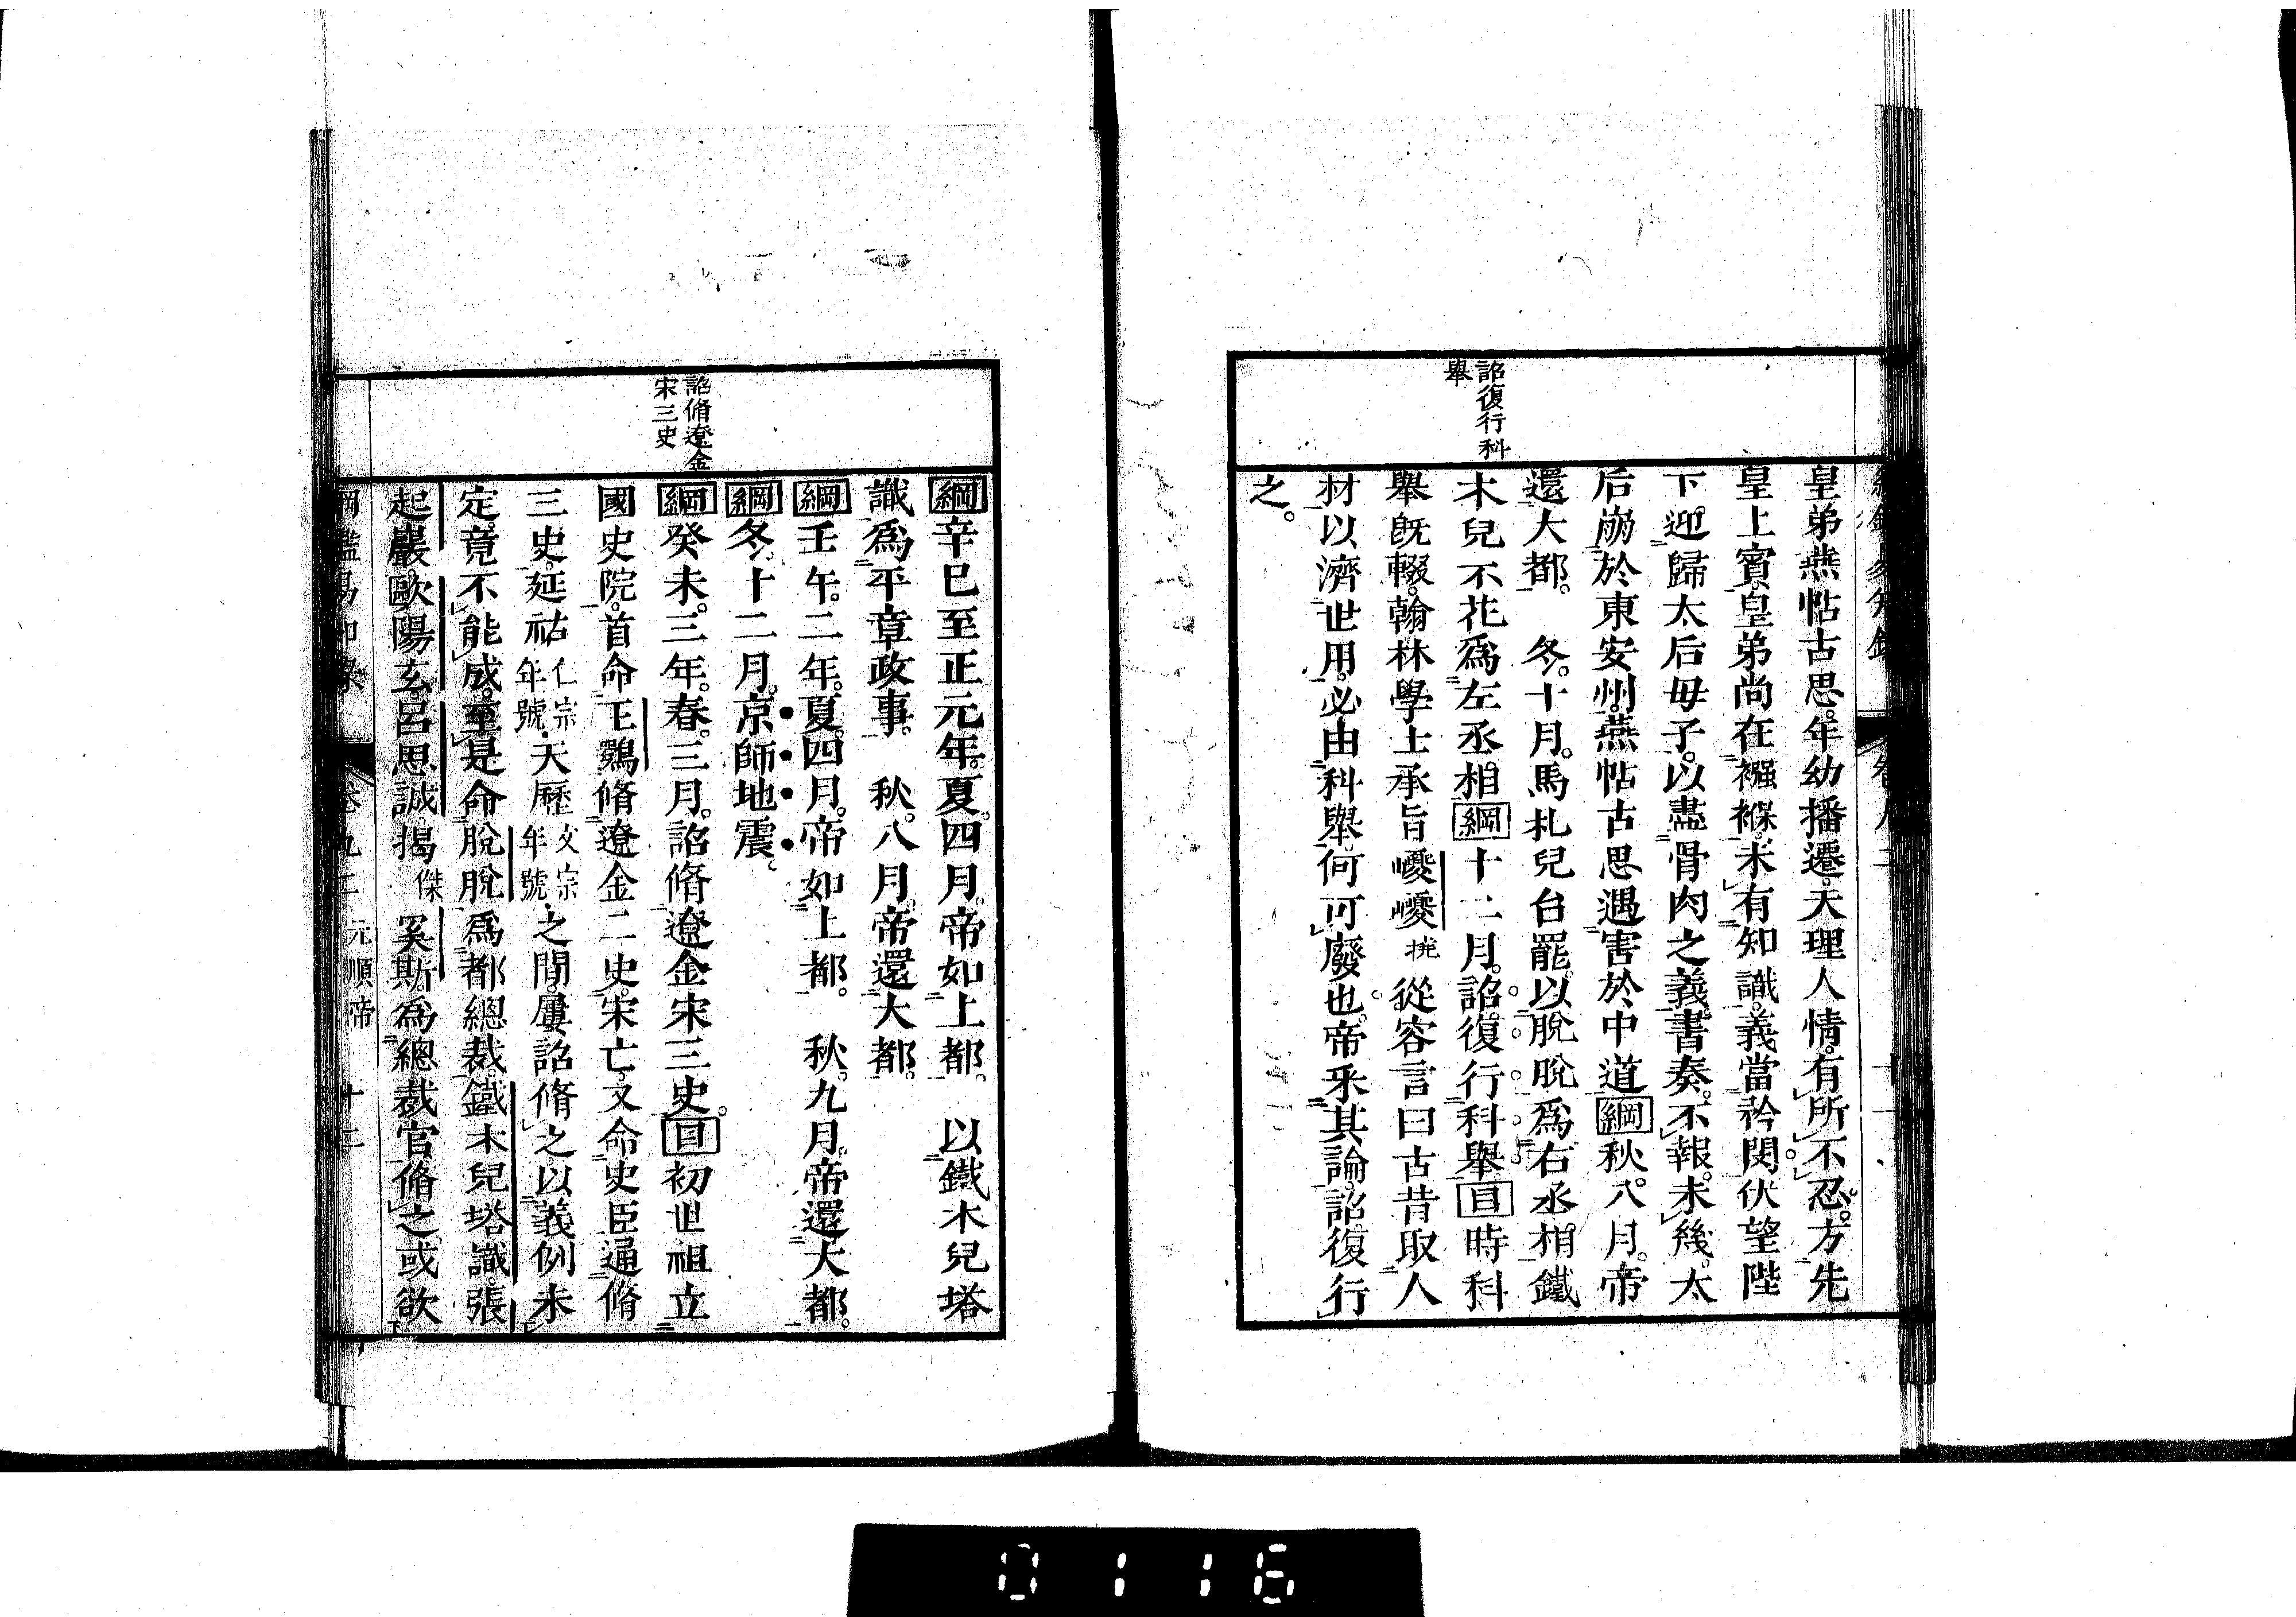 詔復行科
舉
皇弟燕帖古思。年幼播遷。天理人情。有所不忍。方先
皇上賓。皇弟尚在襁褓。未有知識。義當矜閔。伏望陛
下。迎歸太后母子。以盡骨肉之義。書奏。不報。未幾。太
后崩於東安州。燕帖古思遇害於中道綱秋。八月。帝
還大都。　冬。十月。馬札兒台罷。以脫脫爲右丞相。鐵
木兒不花爲左丞相。綱十二月。詔。復行科舉目時科
舉旣輟。翰林學士承旨巙巙撓從容言曰古昔取人
材以濟世用。必由科舉。何可廢也。帝釆其論。詔復行
之。
詔脩遼金
宋三史
綱辛巳至正元年。夏。四月。帝如上都。　以鐵木兒塔
識爲平章政事。　秋。八月。帝還大都。
綱壬午。二年。夏。四月。帝如上都。　秋。九月。帝還大都。
綱冬。十二月。京師地震。
綱癸未。三年。春。三月。詔脩遼金宋三史。目初世祖立
國史院。首命王鶚脩遼金二史。宋亡。又命史臣通脩
三史。延祐仁宗年號・天歷文宗年號・之間。屢詔脩之。以義例未
定。竟不能成。至是命脫脫爲都總裁。鐵木兒塔識。張
起巖。歐陽玄。呂思誠。揭傑奚斯。爲總裁官脩之。或欲
卷九二　元順帝　十二